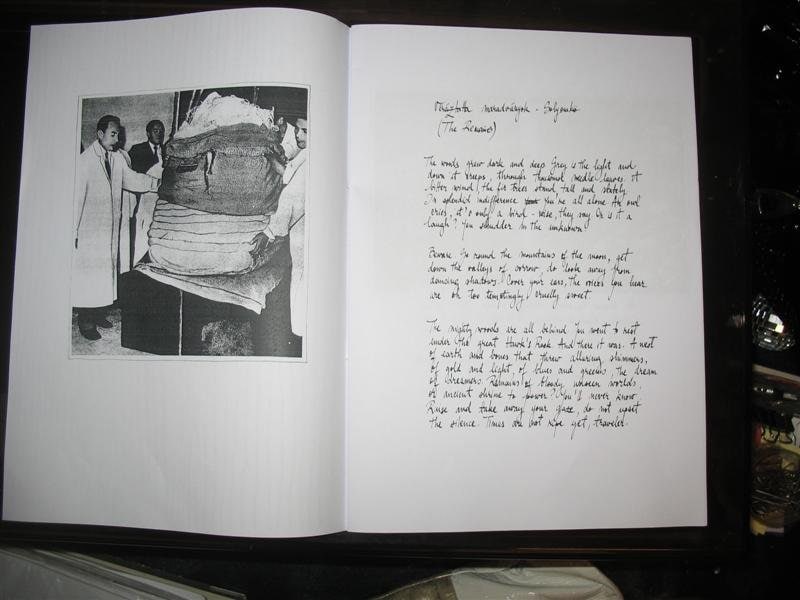 maradványok - Sólyomkő
(The Remains)
The woods grew dark and deep. Grey is the light and
down it creeps, through thousand needle leaves. A
bitter wind, the fir trees stand, tall and stately.
In splendid indifference you're all alone. An owl
cries, it's only a bird - wise, they say. Or is it a
laugh? You shudder in the unknown.
Beware. Go round the mountains of the moon, get
down the valleys of sorrow, do look away from
dancing shadows. Cover your ears, the voices you hear
are oh too temptingly, cruelly sweet.
The mighty woods are all behind. You went to rest
under the great Hawk's Rock. And there it was. A nest
of earth and bones that threw alluring shimmers,
of gold and light, of blues and greens, the dream
of dreamers. Remains of bloody, unseen worlds,
or ancient shrine to power? You'll never know.
Rise and take away your gaze, do not upset
the silence. Times are not ripe yet, traveler.